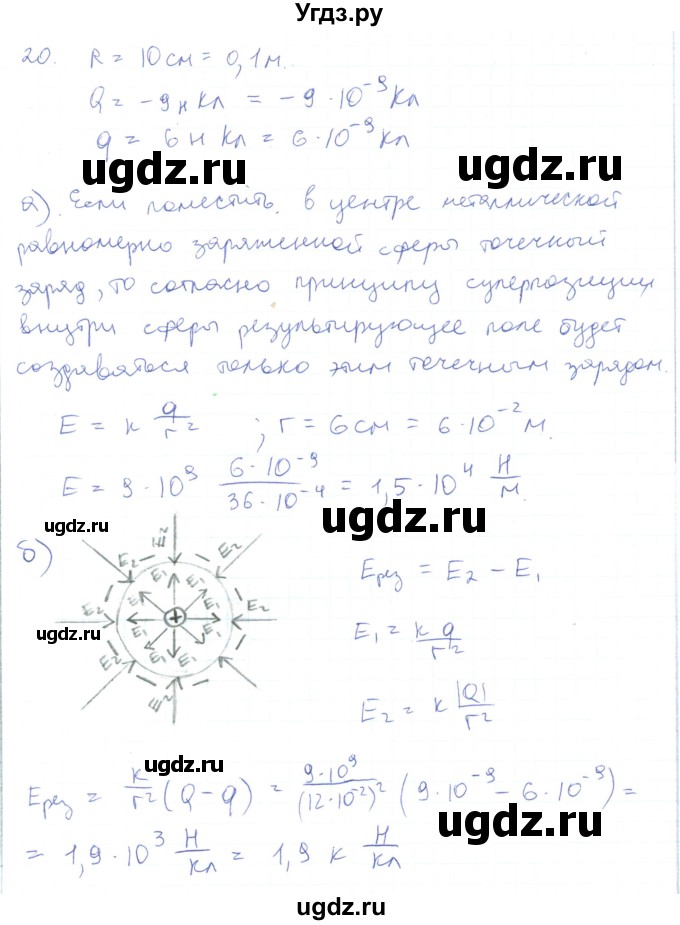 Угдз.ру
20. R = 10 см = 0,1 м.
Q = -9 н Кл = -9 · 10⁻⁹ Кл
q = 6 н Кл = 6 · 10⁻⁹ Кл
ugdz.ru ugdz.ru
а). Если поместить в центре металлической
равномерно заряженной сферы точечный
заряд, то согласно принципу суперпозиции
внутри сферы результирующее поле будет
создаваться только этим точечным зарядом.
E = k q/r² ; r = 6 см = 6 · 10⁻² м.
E = 9 · 10⁹ 6 · 10⁻⁹/36 · 10⁻⁴ = 1,5 · 10⁴ Н/м.
ugdz.ru ugdz.ru
б)
E₂ E₂ E₂ E₂ E₂ E₂ E₂
E₁ E₁ E₁ E₁ E₁ E₁ E₁ E₁
+
ugdz.ru
Eрез = E₂ - E₁
E₁ = k q/r²
E₂ = k |Q|/r²
ugdz.ru
Eрез = k/r² (Q - q) = 9 · 10⁹/(12 · 10⁻²)² (9 · 10⁻⁹ - 6 · 10⁻⁹) =
ugdz.ru
= 1,9 · 10³ Н/Кл = 1,9 к Н/Кл
ugdz.ru